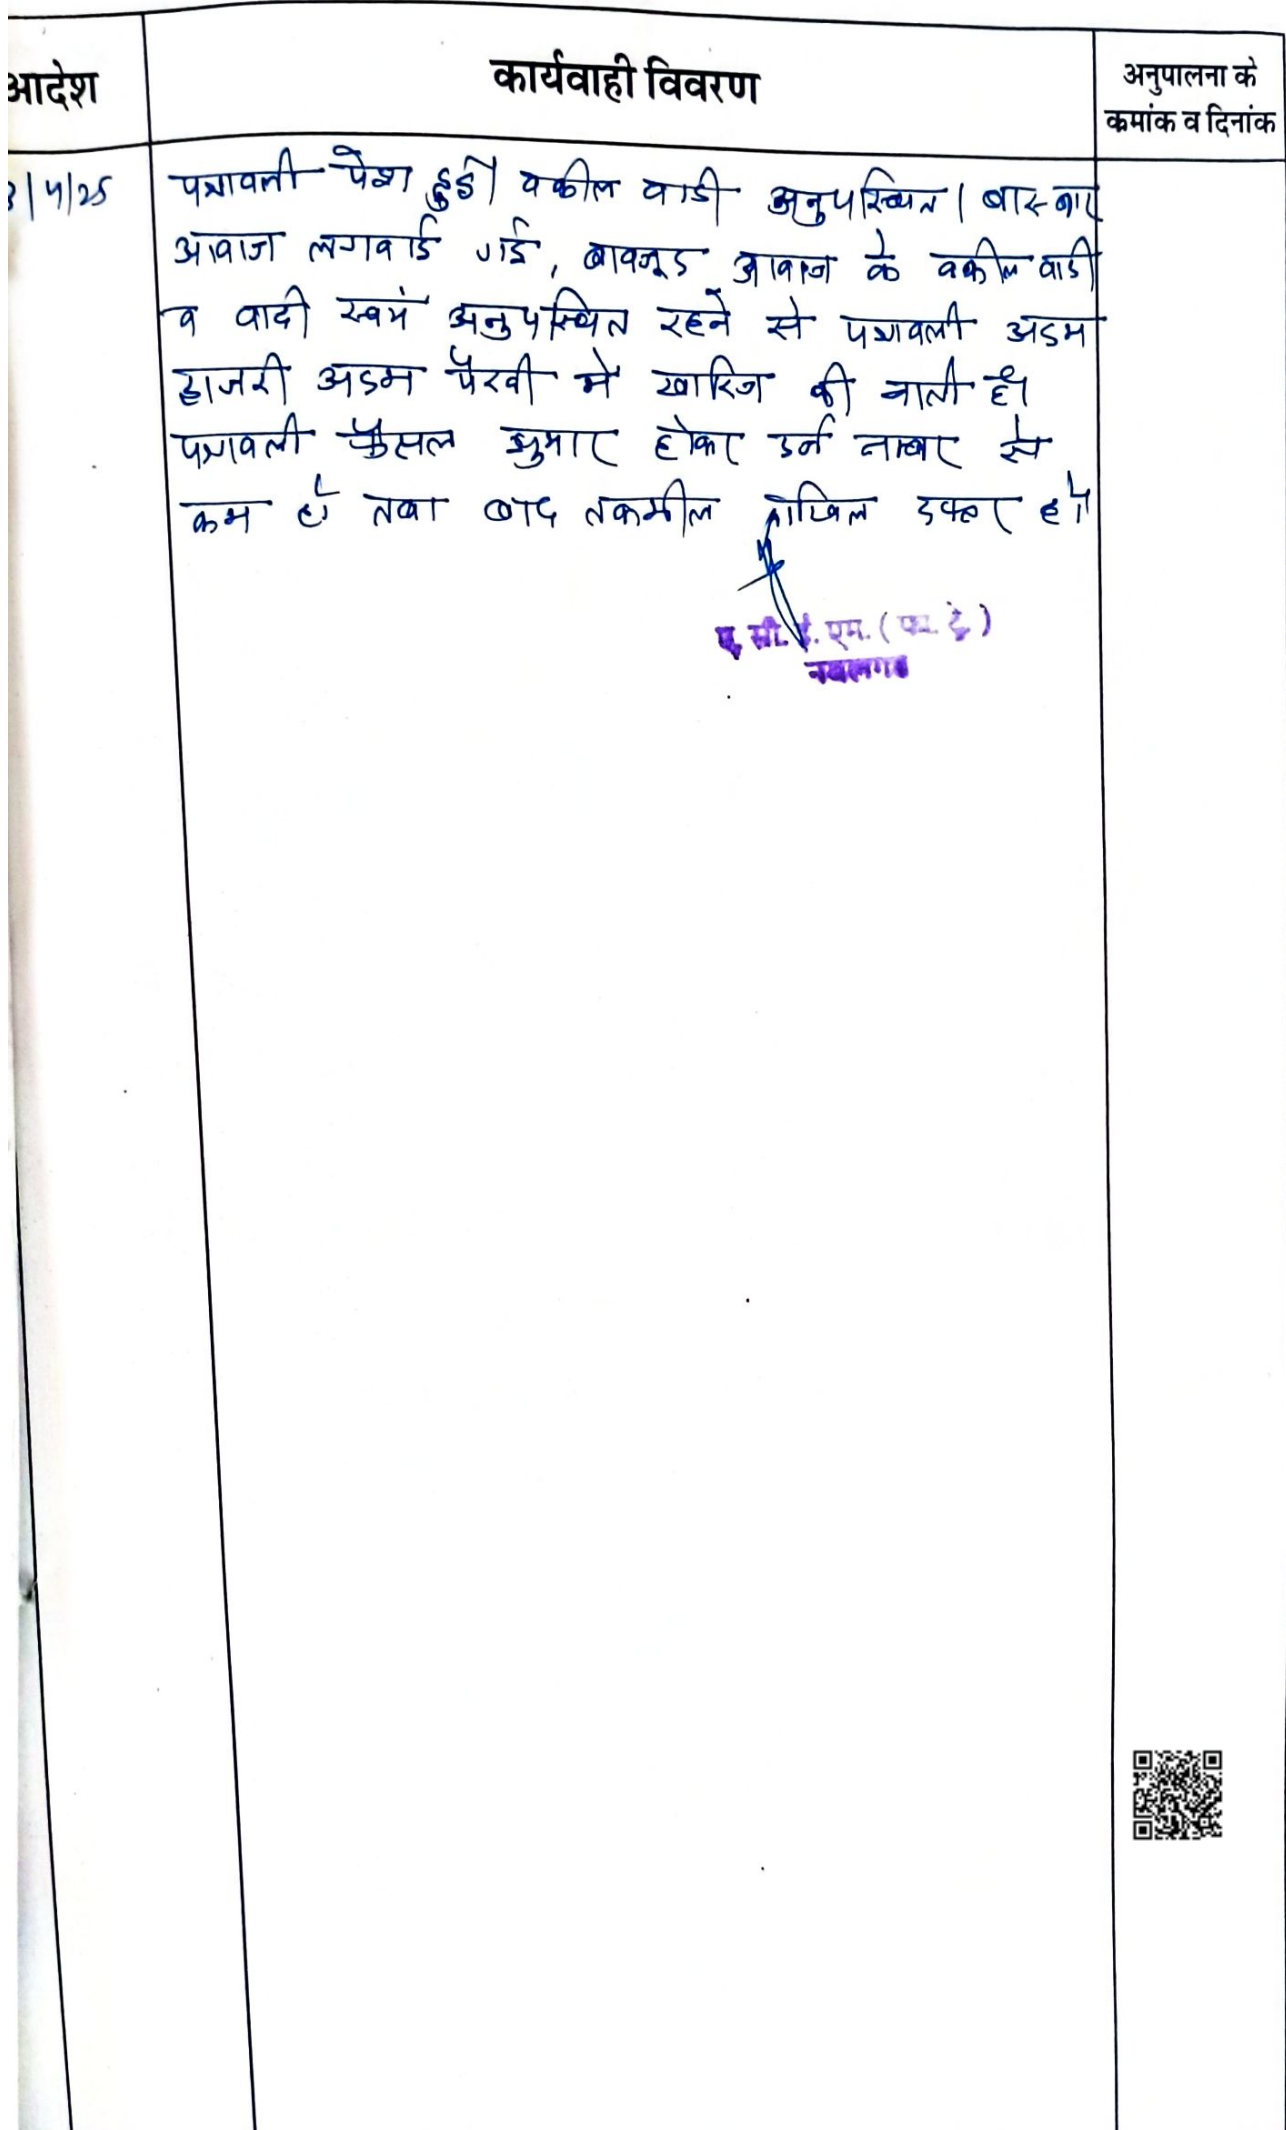 आदेश
कार्यवाही विवरण
अनुपालना के
कमांक व दिनांक
/4/25
पत्रावली पेश हुई। वकील वादी अनुपस्थित। बार-बार
आवाज लगवाई गई, बावजूद आवाज के वकील वादी
व वादी स्वयं अनुपस्थित रहने से पत्रावली अदम
हाजरी अदम पैरवी में खारिज की जाती है।
पत्रावली फैसल शुमार होकर दर्ज नम्बर से
कम हो तथा बाद तकमील दाखिल दफ्तर हो।
ए. सी. जे. एम. (फा. ट्रे.)
नवलगढ